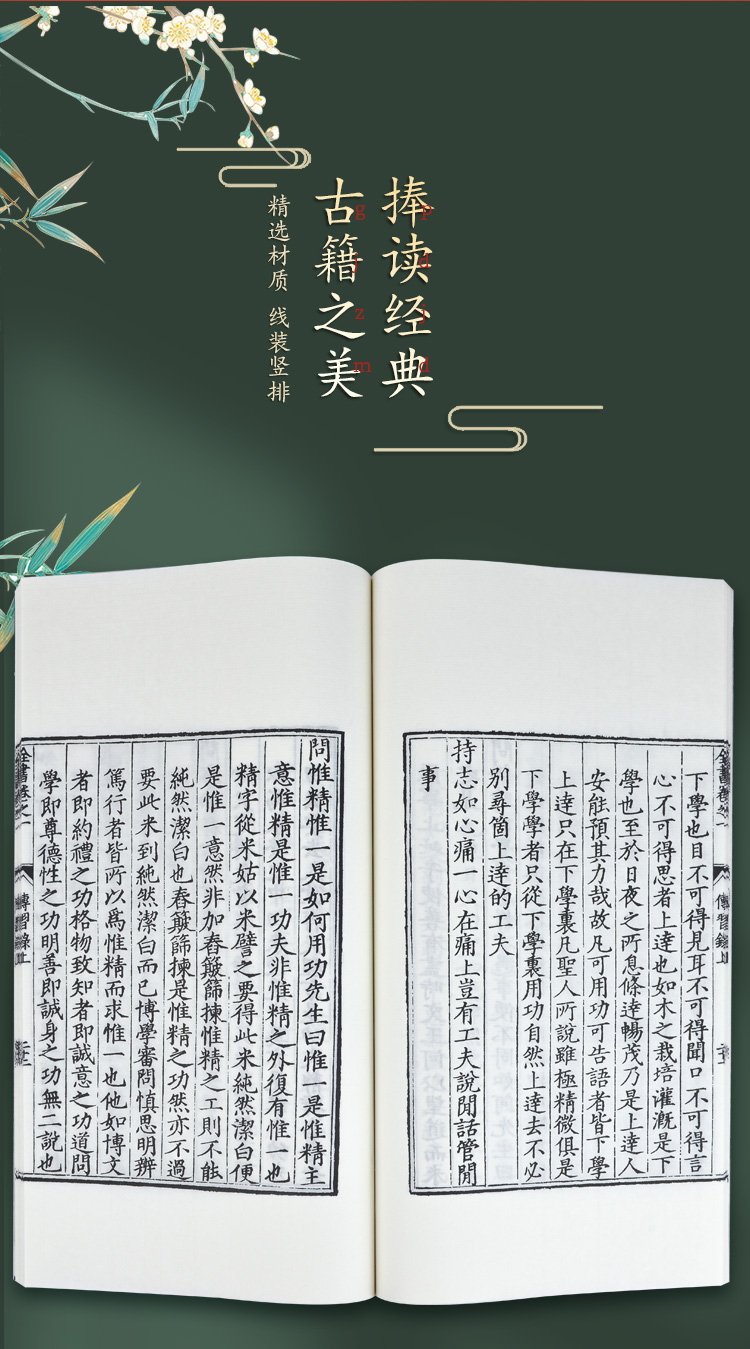 捧读经典
pdjd
古籍之美
gjzm
精选材质 线装竖排
全書卷之一
傳習錄上
下學也目不可得見耳不可得聞口不可得言
心不可得思者上達也如木之栽培灌溉是下
學也至於日夜之所息條達暢茂乃是上達人
安能預其力哉故凡可用功可告語者皆下學
上達只在下學裏凡聖人所說雖極精微俱是
下學學者只從下學裏用功自然上達去不必
別尋箇上達的工夫
持志如心痛一心在痛上豈有工夫說閒話管閒
事
問惟精惟一是如何用功先生曰惟一是惟精主
意惟精是惟一功夫非惟精之外復有惟一也
精字從米姑以米譬之要得此米純然潔白便
是惟一意然非加舂簸篩揀惟精之工則不能
純然潔白也舂簸篩揀是惟精之功然亦不過
要此米到純然潔白而已博學審問慎思明辨
篤行者皆所以爲惟精而求惟一也他如博文
者即約禮之功格物致知者即誠意之功道問
學即尊德性之功明善即誠身之功無二說也
全書卷之一
傳習錄上